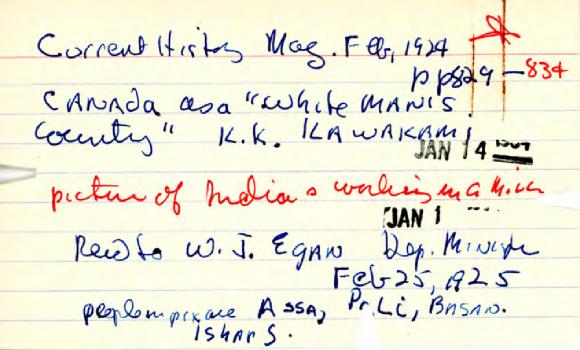 Current History Mag. Feb, 1924
pp 829 - 834
CANADA as a "white MAN'S
Country" K.K. KAWAKAMI
JAN 14
picture of Indians working in a Mill
JAN 1
Read to W. J. EGAN Dep. Minister
Feb 25, 1925
people in picture ASSA, Pr. Li, BASAN.
Ishar S.